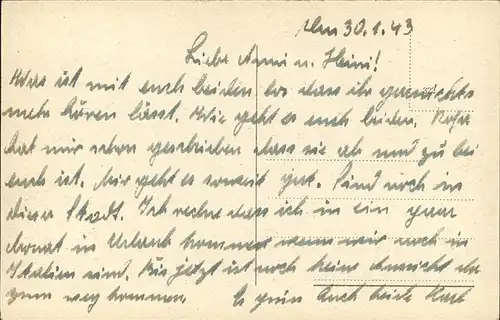 Am 30.1.43
Liebe Anni u. Heini!
Was ist mit euch beiden los dass ihr garnichts
mehr hören lässt. Wie geht es euch beiden. Rosa
hat mir schon geschrieben dass sie ab und zu bei
euch ist. Mir geht es soweit gut. Sind noch in
dieser Stadt. Ich rechne dass ich in ein paar
Monat in Urlaub kommen wenn wir noch in
Italien sind. Bis jetzt ist noch keine Aussicht da
zum weg kommen. Es grüßt Euch beide Karl